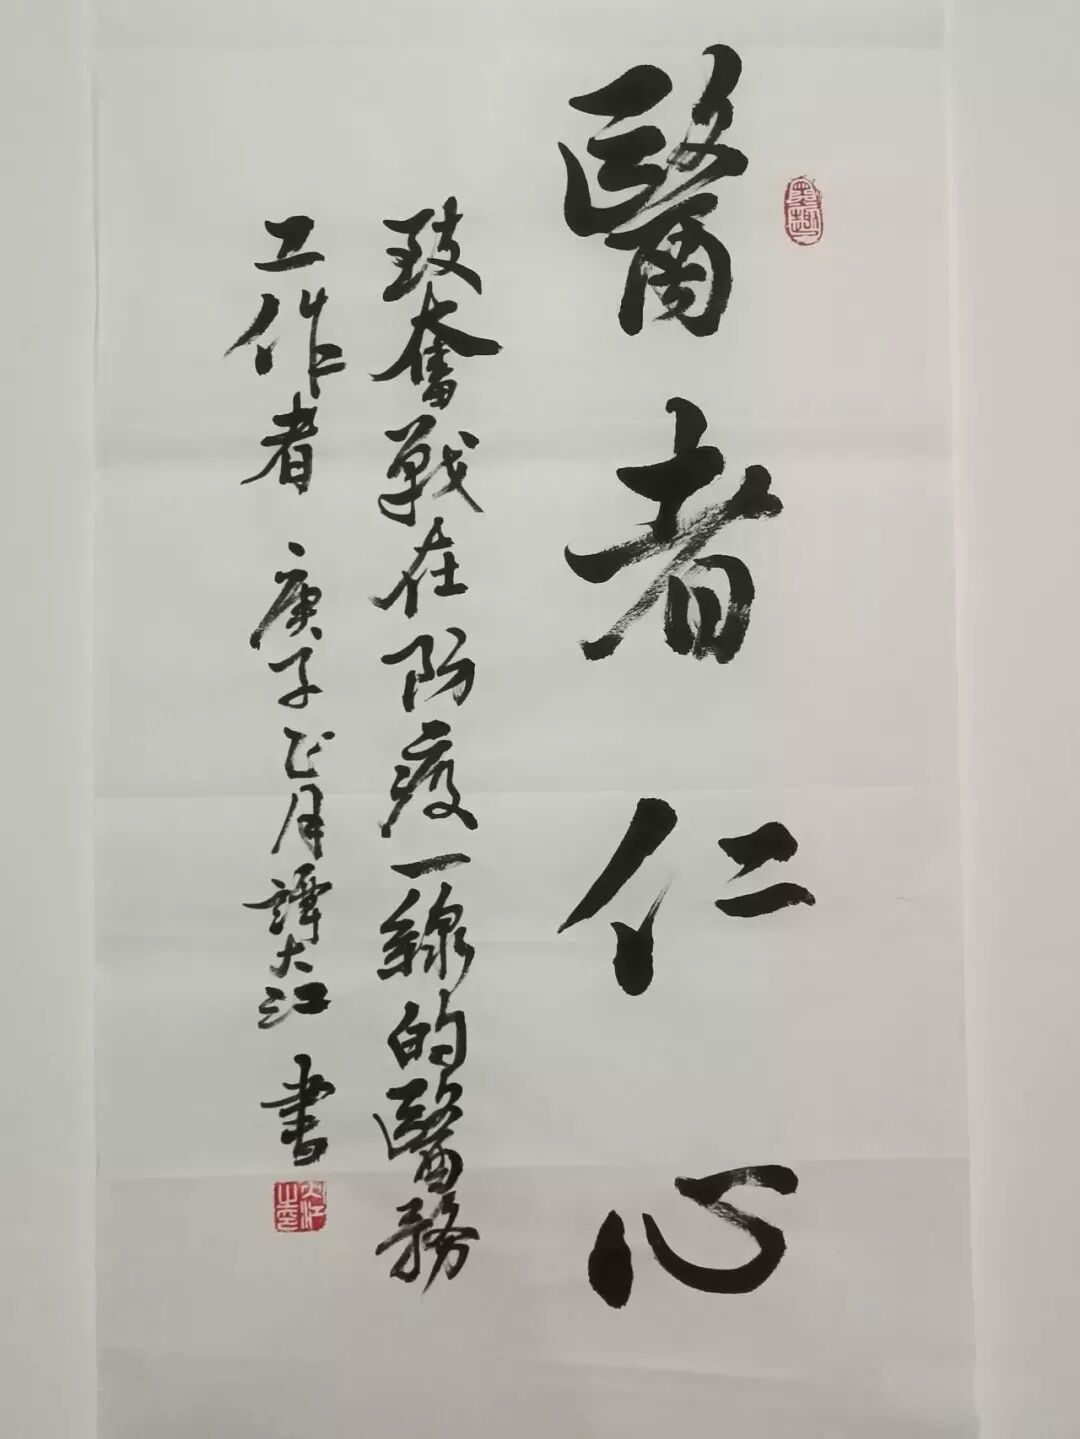 醫者仁心
致奮戰在防疫一線的醫務
工作者 庚子正月譚大江 書
墨趣
大江之印